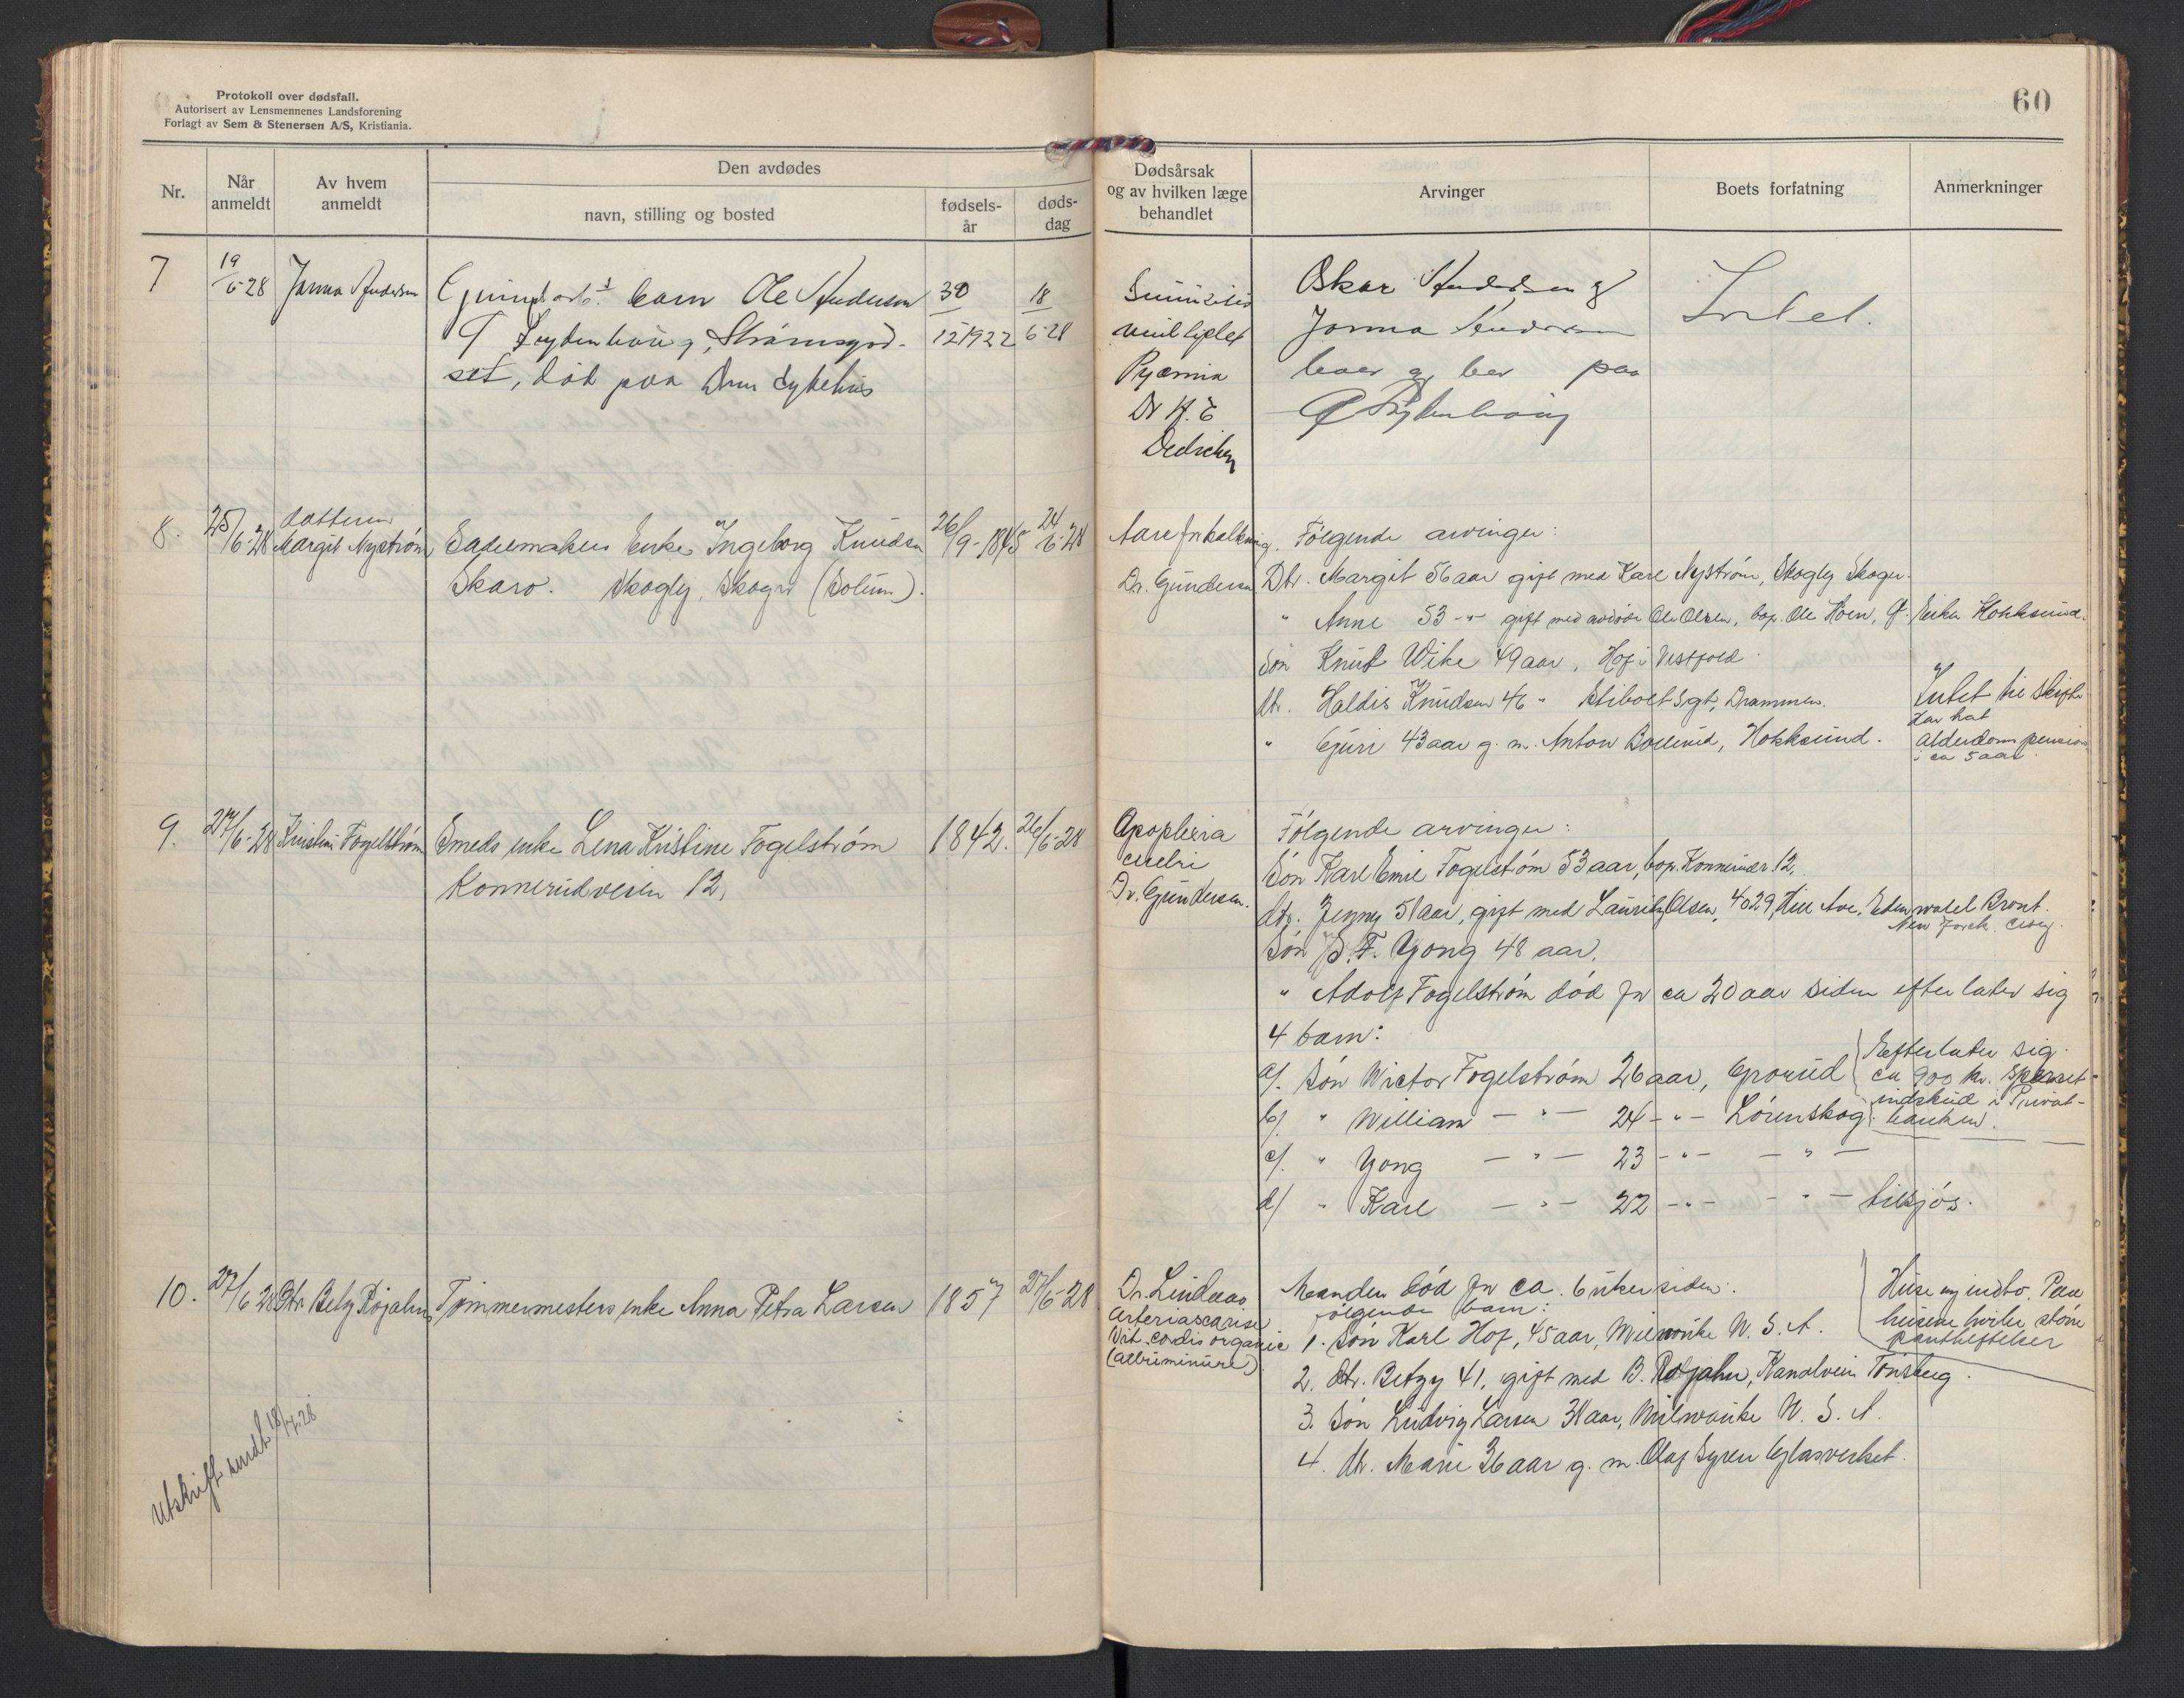 Protokoll over dødsfall.
Autorisert av Lensmennenes Landsforening
Forlagt av Sem & Stenersen A/S, Kristiania.
60
Nr.
Når anmeldt
Av hvem anmeldt
Den avdødes
navn, stilling og bosted
fødsels-år
døds-dag
Dødsårsak og av hvilken læge behandlet
Arvinger
Boets forfatning
Anmerkninger
7
19/6-28
Andersen
barn Ole Andersen
Strømsgod-
set, død paa Drm sykehus
30/12 1922
18/6-28
Pyæmia
Dr H. E
Dedichen
Oskar Andersen og
Andersen
boer paa
Intet.
8.
25/6-28
datteren
Margit Nystrøm
Sadelmakers Enke Ingeborg Knudsen
Skaro. Skogly, Skoger (Solum).
26/9-1845
24/6-28
Aareforkalkning.
Dr. Gundersen
Følgende arvinger:
Dtr. Margit 56 aar gift med Karl Nystrøm, Skogly Skoger.
" Anne 53 -"- gift med avdøde Ole Olsen, bop. Ole Hoen, Ø. Eiker Hokksund.
Søn Knut Wike 49 aar, Hof i Vestfold.
dtr. Haldis Knudsen 46 " Stibolts gt, Drammen.
" Guri 43 aar g. m. Anton Bollerud, Hokksund.
Intet til skifte
Har hat
alderdomspension
i ca 5 aar.
9.
27/6-28
Kristine Fogelstrøm
Smeds enke Lena Kristine Fogelstrøm
Konnerudveien 12,
1842.
26/6-28
Apoplexia
cerebri
Dr. Gundersen.
Følgende arvinger:
Søn Karl Emil Fogelstrøm 53 aar, bop. Konnerudv 12,
dtr. Jenny 51 aar, gift med Lauritz Olsen, 4029, Hill Ave. Edenwald Bront.
New York City.
Søn P. F. Yong 48 aar,
" Adolf Fogelstrøm død for ca 20 aar siden efterlater sig
4 barn:
a/. Søn Wictor Fogelstrøm 26 aar, Grorud
b/. " William -"- 24 -"- Lørenskog
c/. " Yong -"- 23 -"- -"-
d/ " Karl -"- 22 -"- -"- tilsjøs.
Efterlater sig
ca 900 kr. spareset-
indskud i Privat-
banken.
10.
27/6 28
Dtr Betzy Rojahn
Tømmermesters enke Anna Petra Larsen
1857
27/6-28
Dr. Lindeaas
Vit. cordis organic
Manden død for ca. 6 uker siden.
følgende barn:
1. Søn Karl Hof, 45 aar, Milwauke U. S. A.
2. dtr. Betzy 41, gift med B. Rojahn, Kanalvein Tønsberg.
3. Søn Ludvig Larsen 31 aar, Milwauke U. S. A.
4. dtr. Marie 36 aar g. m. Olaf Syren Glasverket.
Huse og indbo. Paa
husene hviler større
pantheftelser
Utskrift sendt 18/7.28